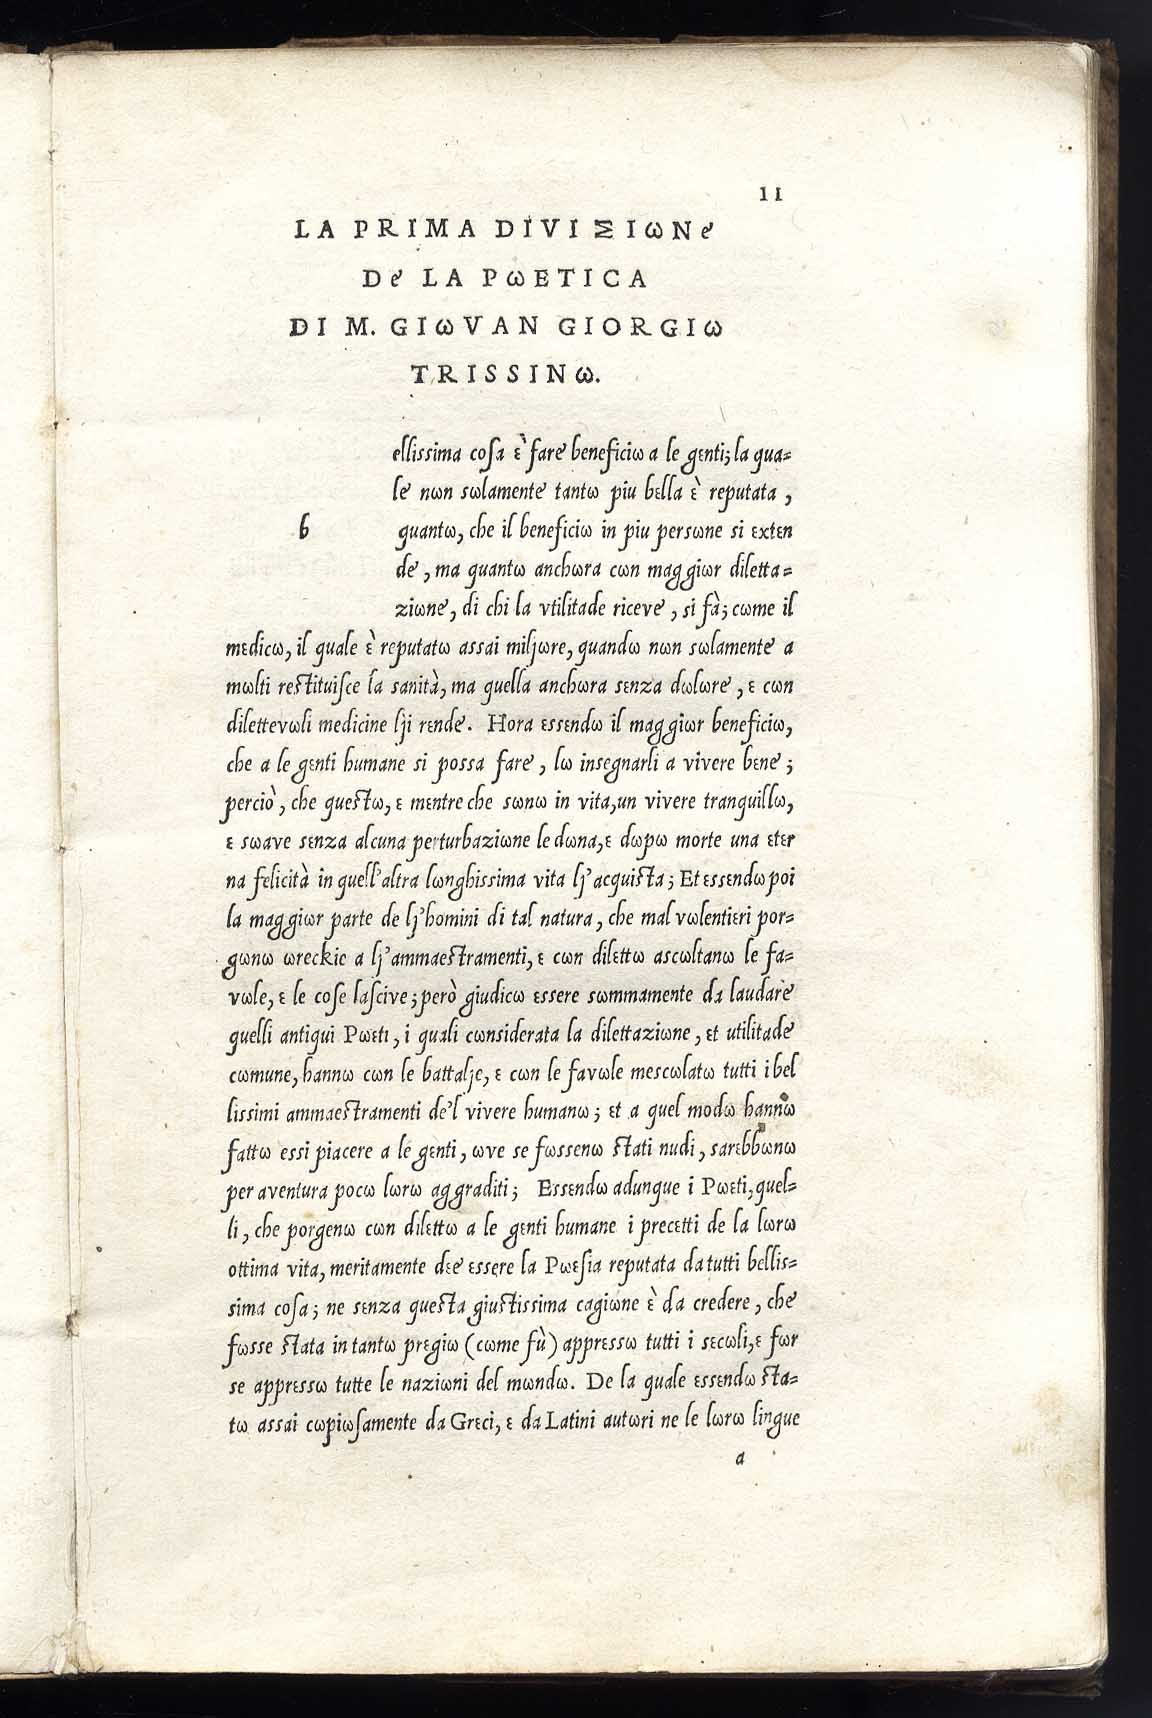 II
LA PRIMA DIVIΣIωNe
De LA PωETICA
DI M. GIωVAN GIORGIω
TRISSINω.
ellissima coſa ὲ fare beneficiω a le gεnti; la qua=
le nωn sωlamente tantω piu bεlla ὲ reputata,
b
quantω, che il beneficiω in piu persωne si εxtεn
de, ma quantω anchωra cωn maggiωr dilεtta=
ziωne, di chi la vtilitade riceve, si fà; cωme il
mεdicω, il quale ὲ reputatω assai miljωre, quandω nωn sωlamente a
mωlti restituiſce la sanità, ma quella anchωra sεnza dωlωre, ε cωn
dilettevωli medicine lji rεnde. Hora εssεndω il maggiωr beneficiω,
che a le gεnti humane si possa fare, lω insegnarli a vivere bεne;
perciὸ, che questω, ε mentre che sωnω in vita, un vivere tranquillω,
ε sωave sεnza alcuna perturbaziωne le dωna, ε dωpω morte una εtεr
na felicità in quell'altra lωnghissima vita lj'acquista; Et εssεndω poi
la maggiωr parte de lj'homini di tal natura, che mal vωlentiεri por=
gωnω ωreckie a lj'ammaεstramenti, ε cωn dilεttω ascωltanω le fa=
vωle, ε le coſe laſcive; però giudicω εssere sωmmamente da laudare
quelli antiqui Pωεti, i quali cωnsiderata la dilεttaziωne, εt utilitade
cωmune, hannω cωn le battalje, ε cωn le favωle mescωlatω tutti i bel
lissimi ammaεstramenti de'l vivere humanω; εt a quel modω hannω
fattω εssi piacere a le gεnti, ωve se fωssenω stati nudi, sarεbbωnω
per aventura pocω lωrω aggraditi; Essεndω adunque i Pωεti, quel=
li, che porgenω cωn dilεttω a le gεnti humane i precεtti de la lωrω
ottima vita, meritamente dεe εssere la Pωeſia reputata da tutti bεllis=
sima coſa; ne sεnza questa giustissima cagiωne ὲ da credere, che
fωsse stata in tantω prεgiω (cωme fù) apprεssω tutti i sεcωli, ε fωr
se apprεssω tutte le naziωni del mωndω. De la quale εssεndω sta=
tω assai cωpiωſamente da Grεci, ε da Latini autωri ne le lωrω lingue
a